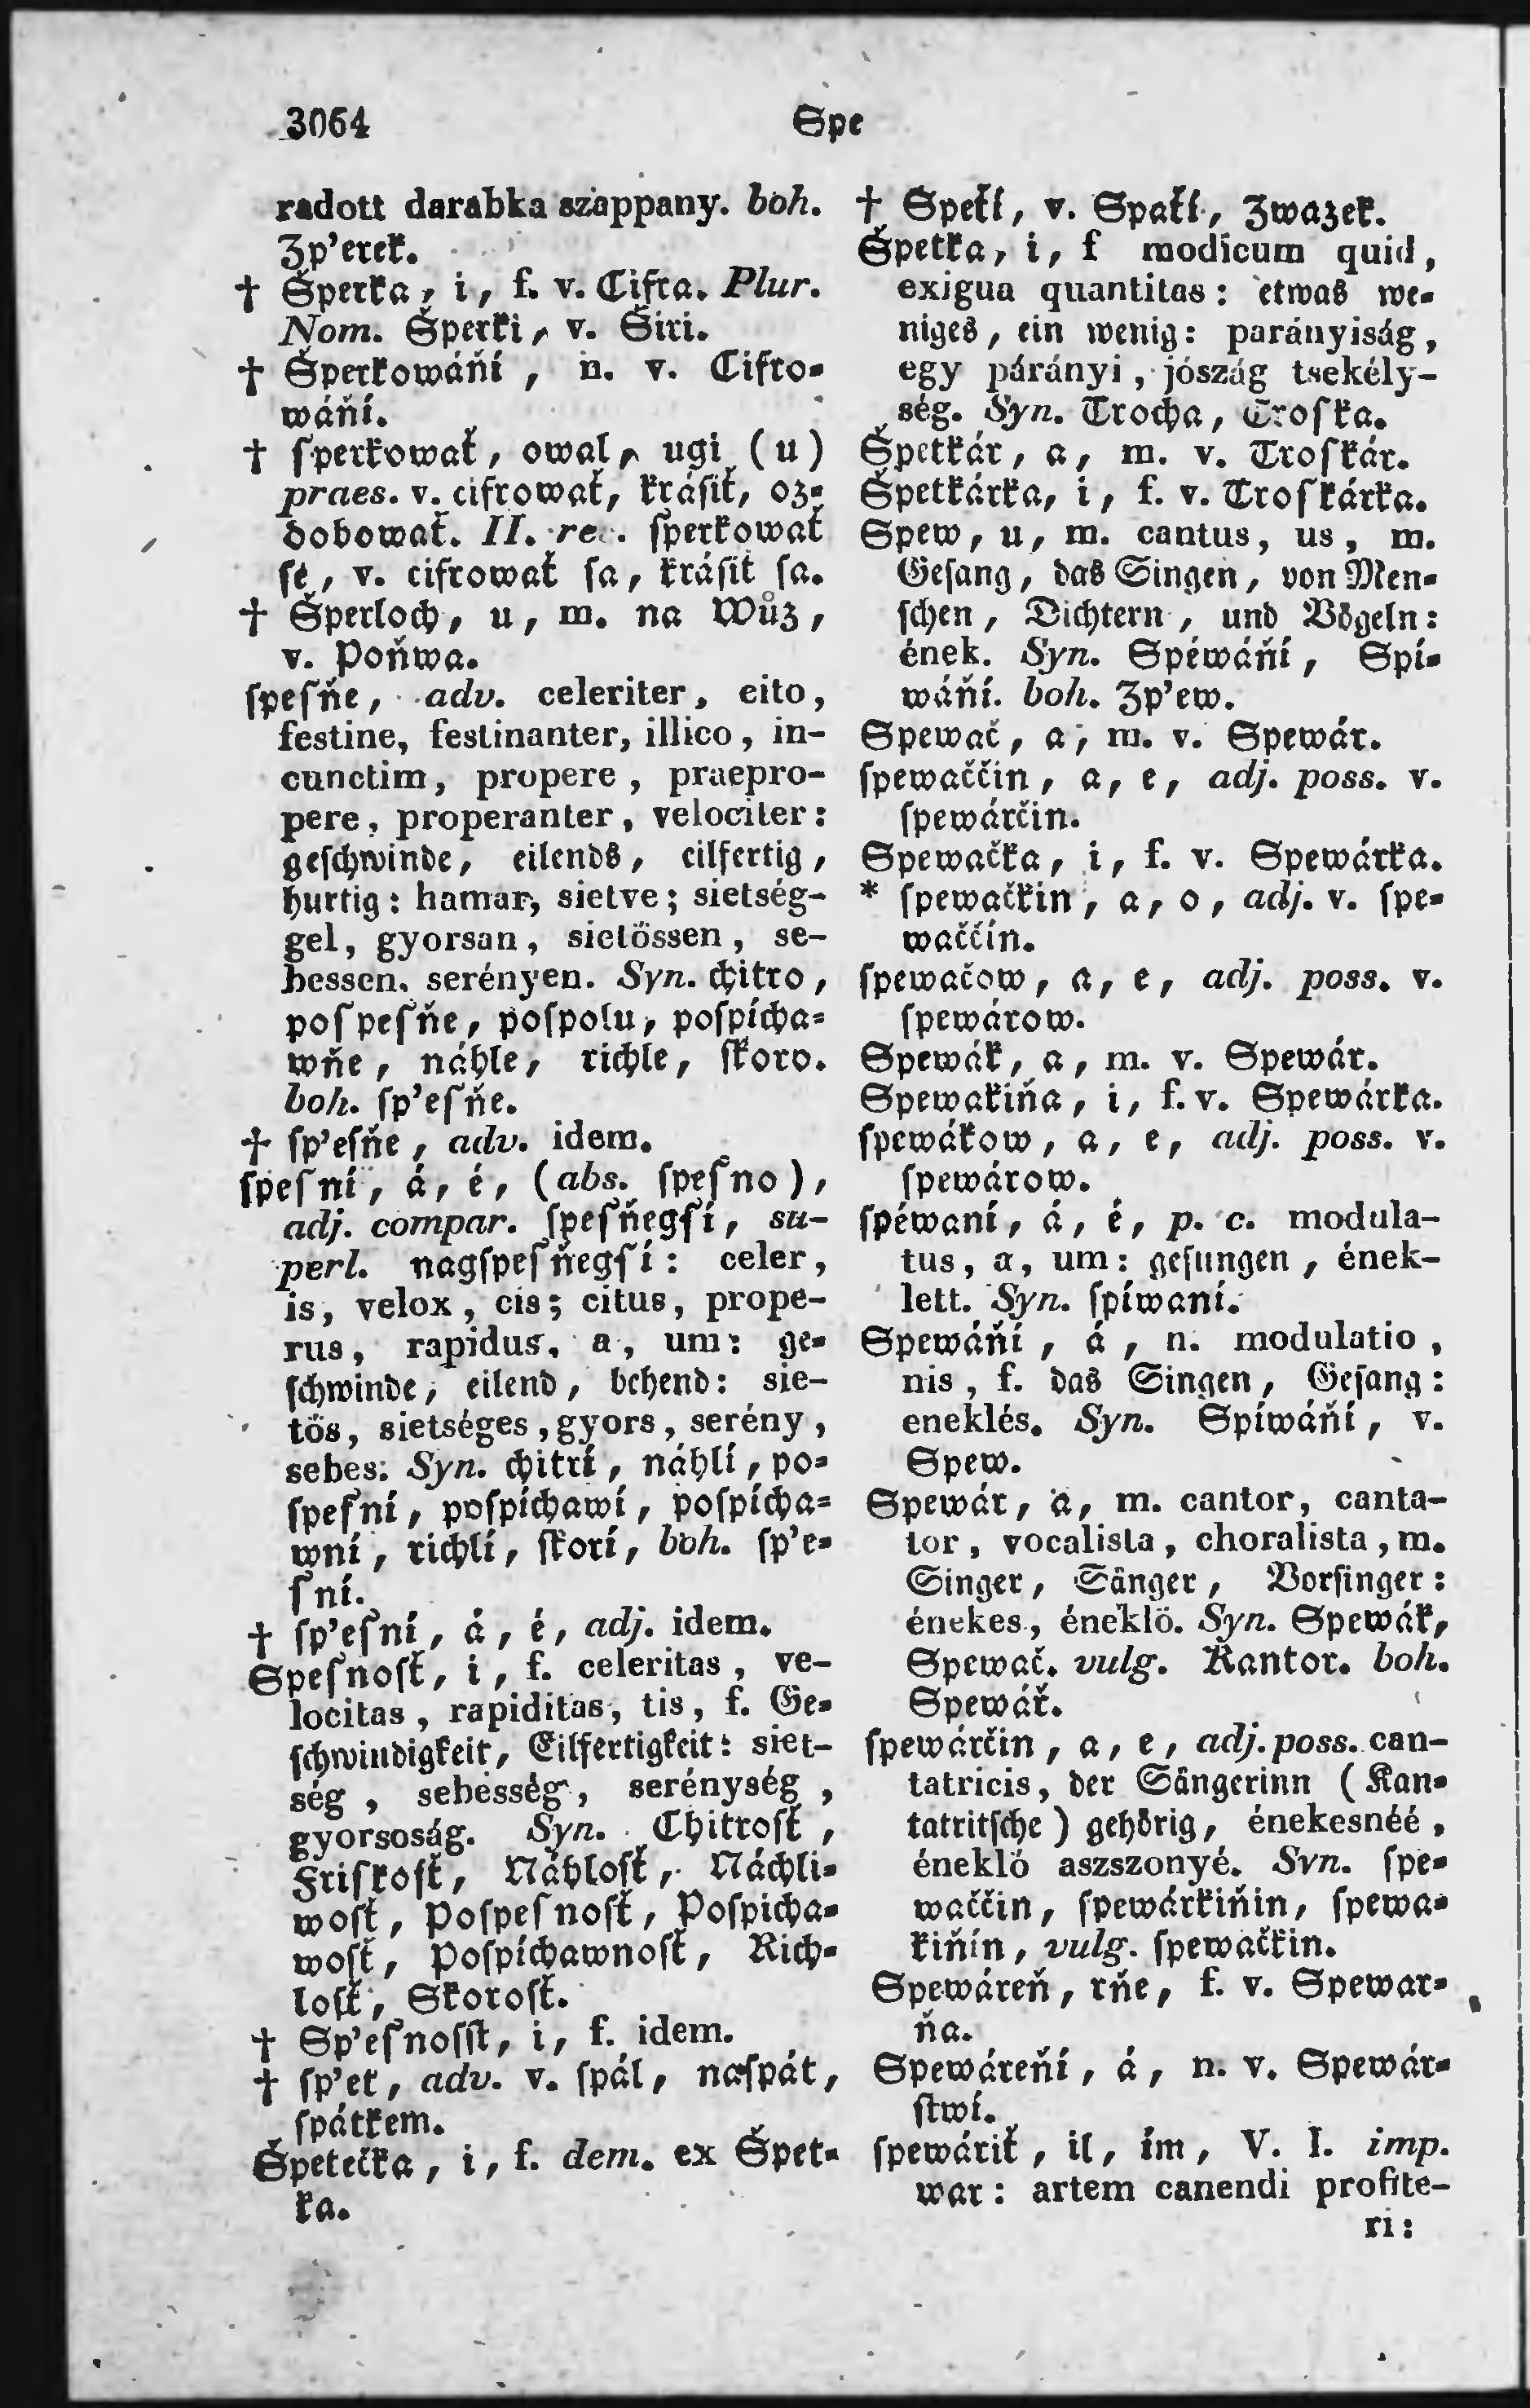 3064
Spe
radott darabka szappany. boh.
Zp'erek.
† Šperka, i, f. v. Cifra. Plur.
Nom. Šperki, v. Širi.
† Šperkowáňí, n. v. Cifro-
wáňí.
† šperkowať, owal, ugi (u)
praes. v. cifrowať, krásiť, oz-
dobowať. II. rec. šperkowať
se, v. cifrowať sa, krásiť sa.
† Šperloch, u, m. na Wůz,
v. Poňwa.
spešňe, adv. celeriter, cito,
festine, festinanter, illico, in-
cunctim, propere, praepro-
pere, properanter, velociter:
geschwinde, eilends, eilfertig,
hurtig: hamar, sietve; sietség-
gel, gyorsan, sietössen, se-
bessen, serényen. Syn. chitro,
pospešňe, pospolu, pospícha-
wňe, náhle, richle, skoro.
boh. sp'ešňe.
† sp'ešňe, adv. idem.
spešní, á, é, (abs. spešno),
adj. compar. spešňegší, su-
perl. nagspešňegší: celer,
is, velox, cis; citus, prope-
rus, rapidus, a, um: ge-
schwinde, eilend, behend: sie-
tös, sietséges, gyors, serény,
sebes: Syn. chitrí, náhlí, po-
spešní, pospíchawí, pospícha-
wní, richlí, skorí, boh. sp'e-
šní.
† sp'ešní, á, é, adj. idem.
Spešnosť, i, f. celeritas, ve-
locitas, rapiditas, tis, f. Ge-
schwindigkeit, Eilfertigkeit: siet-
ség, sebesség, serénység,
gyorsoság. Syn. Chitrosť,
Friškosť, Náhlosť, Náchli-
wosť, Pospešnosť, Pospícha-
wosť, Pospíchawnosť, Rich-
losť, Skorosť.
† Sp'ešnosst, i, f. idem.
† sp'et, adv. v. spál, naspát,
spátkem.
Špetečka, i, f. dem. ex Špet-
ka.
† Speťí, v. Spaťí, Zwazek.
Špetka, i, f modicum quid,
exigua quantitas: etwas we-
niges, ein wenig: parányiság,
egy párányi, jószág tsekély-
ség. Syn. Trocha, Troška.
Špetkár, a, m. v. Troškár.
Špetkárka, i, f. v. Troškárka.
Spew, u, m. cantus, us, m.
Gesang, das Singen, von Men-
schen, Dichtern, und Vögeln:
ének. Syn. Spéwáňí, Spí-
wáňí. boh. Zp'ew.
Spewač, a, m. v. Spewár.
spewaččin, a, e, adj. poss. v.
spewárčin.
Spewačka, i, f. v. Spewárka.
* spewačkin, a, o, adj. v. spe-
waččín.
spewačow, a, e, adj. poss. v.
spewárow.
Spewák, a, m. v. Spewár.
Spewakiňa, i, f. v. Spewárka.
spewákow, a, e, adj. poss. v.
spewárow.
spéwaní, á, é, p. c. modula-
tus, a, um: gesungen, ének-
lett. Syn. spíwaní.
Spewáňí, á, n. modulatio,
nis, f. das Singen, Gesang:
eneklés. Syn. Spíwáňí, v.
Spew.
Spewár, a, m. cantor, canta-
tor, vocalista, choralista, m.
Singer, Sänger, Vorsinger:
énekes, éneklö. Syn. Spewák,
Spewač. vulg. Kantor. boh.
Spewář.
spewárčin, a, e, adj. poss. can-
tatricis, der Sängerinn (Kan-
tatritsche) gehörig, énekesnéé,
éneklö aszszonyé. Syn. spe-
waččin, spewárkiňin, spewa-
kiňín, vulg. spewačkin.
Spewáreň, rňe, f. v. Spewar-
ňa.
Spewáreňí, á, n. v. Spewár-
stwí.
spewáriť, il, ím, V. I. imp.
war: artem canendi profite-
ri: